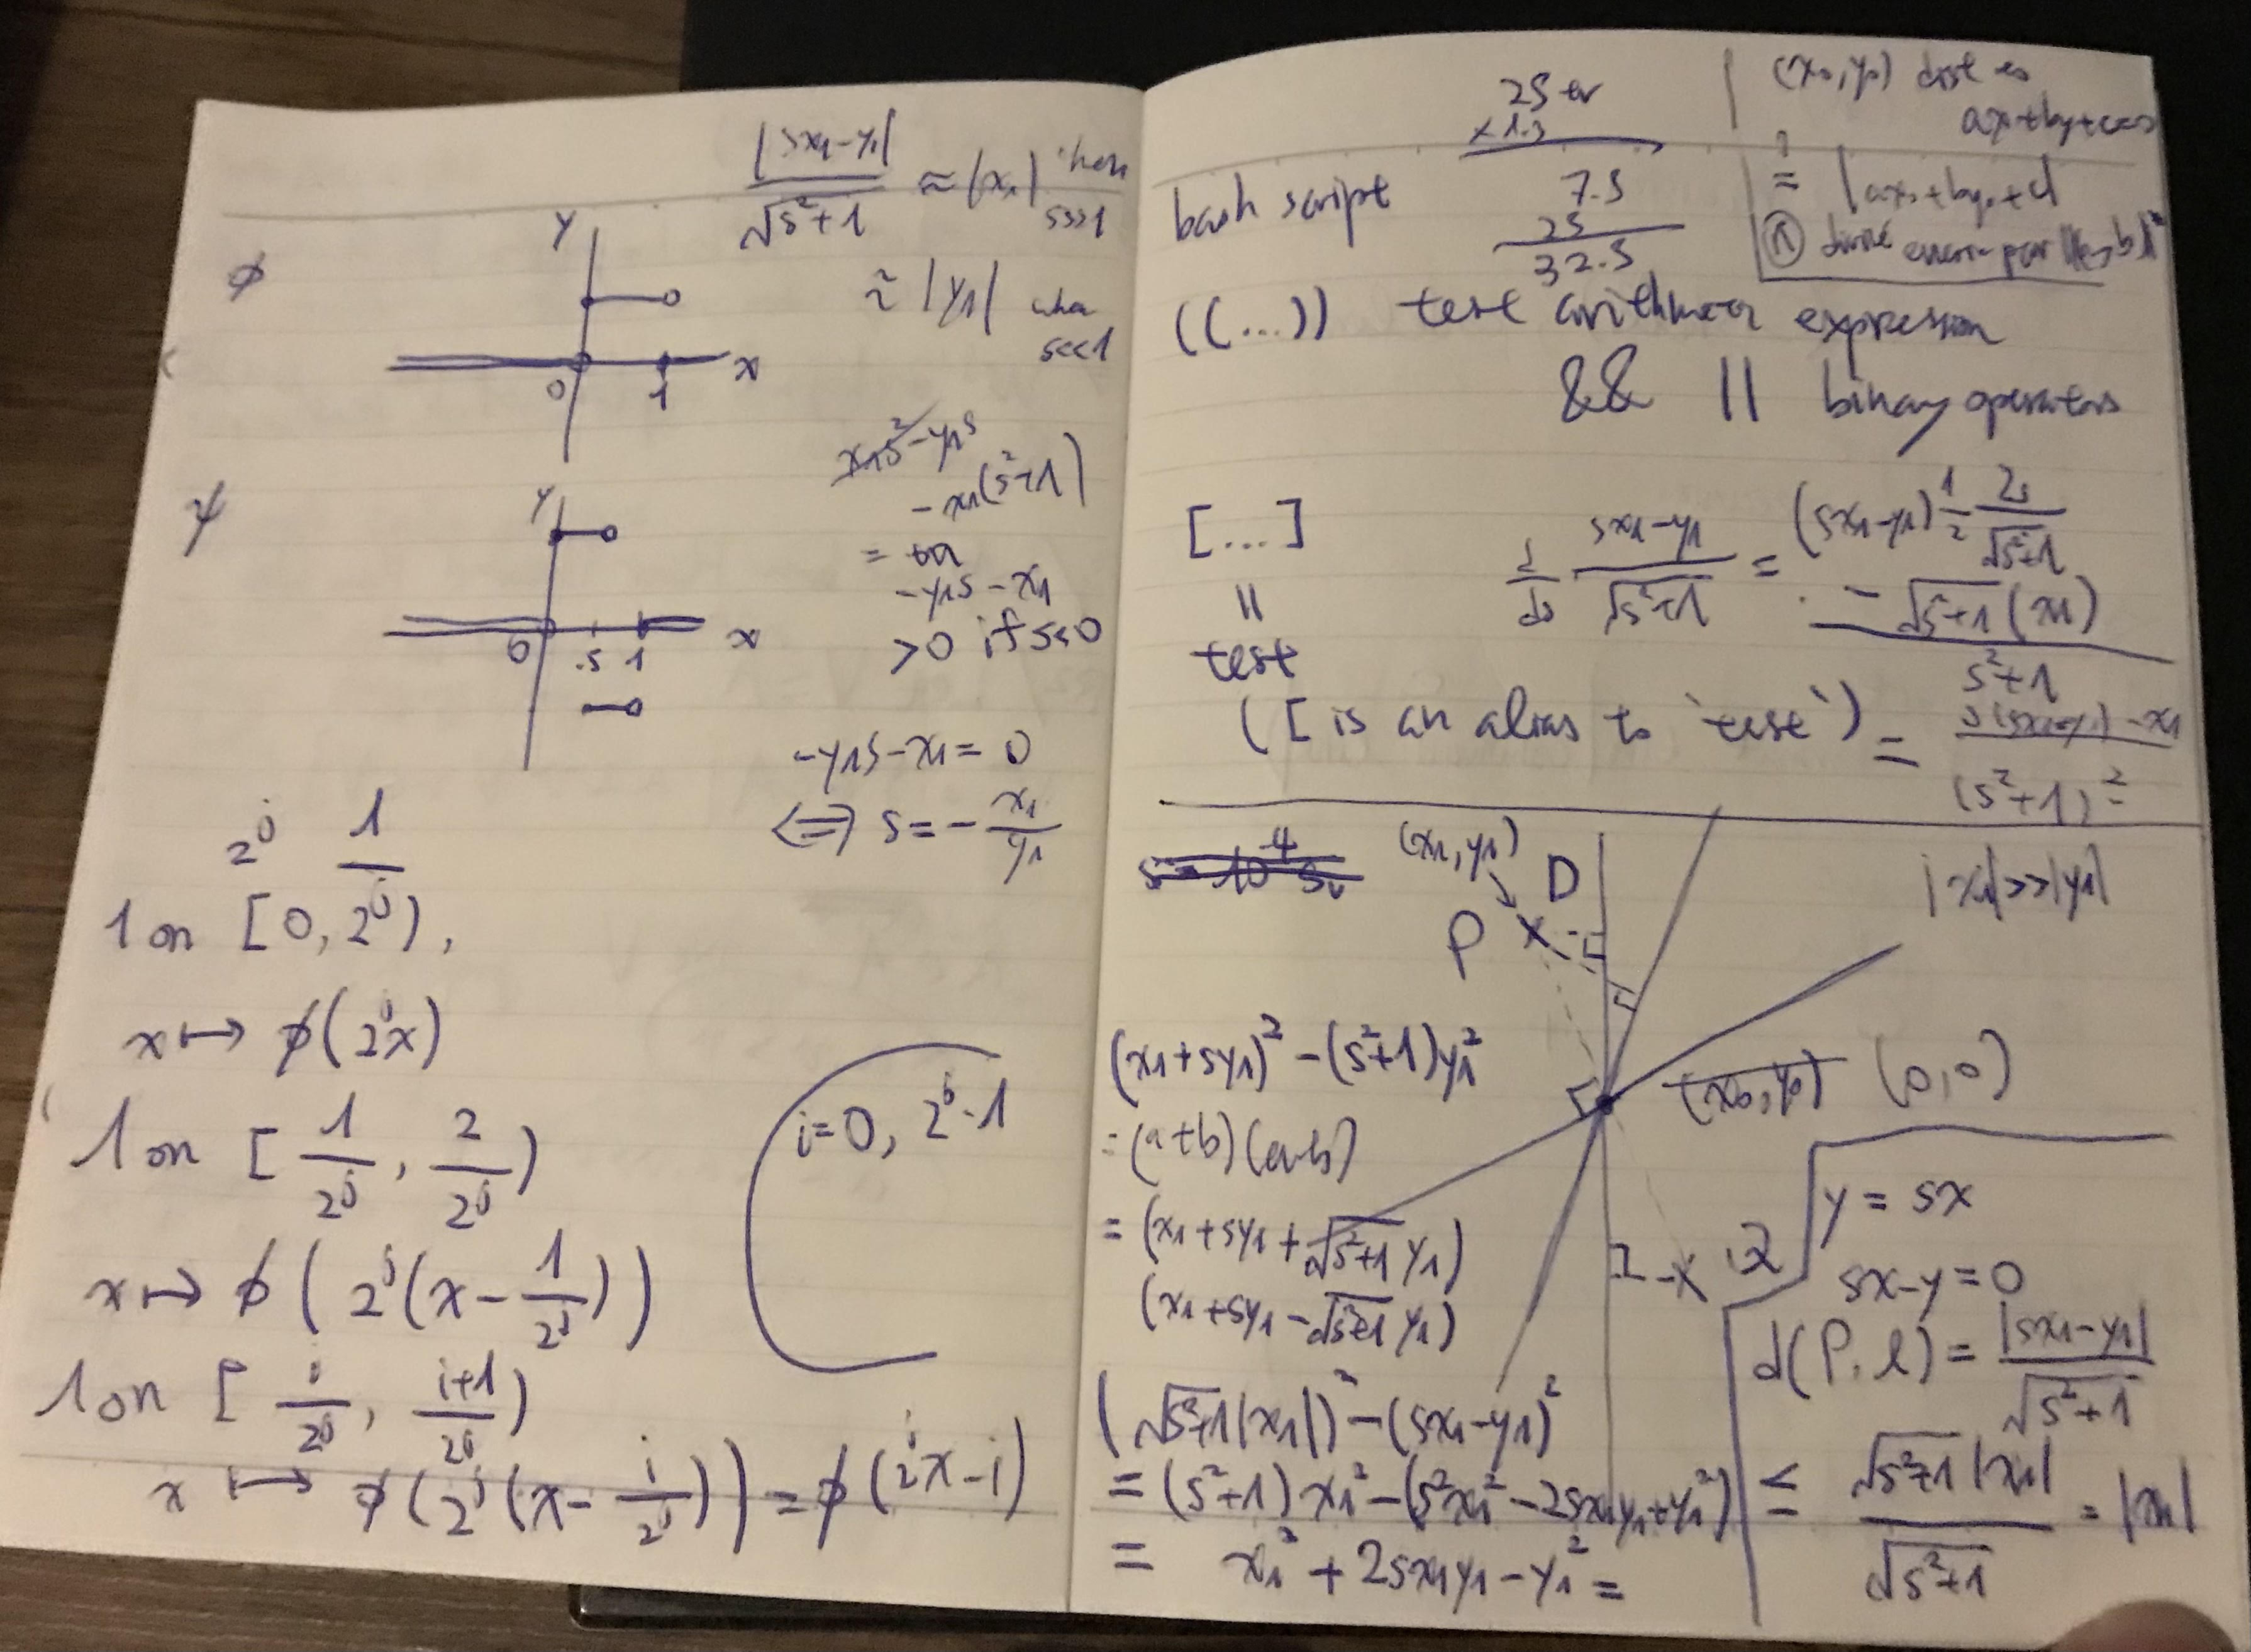 |sx₁-y₁| / √s²+1 ≈ |x₁| when s>>1
≈ |y₁| when s<<1
ϕ
y
0 1 x
x₁s²-y₁s
-x₁(s²+1)
=
-y₁s-x₁
>0 if s<0
ψ
y
0 .5 1 x
-y₁s-x₁=0
⟺ s=-x₁/y₁
2ʲ 1/2ʲ
1 on [0, 2ʲ),
x ↦ ϕ(2ʲx)
1 on [1/2ʲ, 2/2ʲ)
x ↦ ϕ(2ʲ(x-1/2ʲ))
i=0, 2ʲ-1
1 on [i/2ʲ, (i+1)/2ʲ)
x ↦ ϕ(2ʲ(x-i/2ʲ)) = ϕ(2ʲx-i)
25
×1.3
7.5
25
32.5
(x₀,y₀) dist
ax+by+c=0
?
= |ax₀+by₀+c|
bash script
((...)) test arithmetic expression
&& || binary operators
[...]
||
test
([ is an alias to `test`)
d/ds (sx₁-y₁)/√s²+1 = ((sx₁-y₁) 1/2 2s/√s²+1 - √s²+1 (x₁)) / s²+1
= (s(sx₁-y₁)-x₁) / (s²+1)²
(x₁,y₁)
D
P
|x₁|>>|y₁|
(x₀,y₀) (0,0)
(x₁+sy₁)²-(s²+1)y₁²
=(a+b)(a-b)
=(x₁+sy₁+√s²+1 y₁)
(x₁+sy₁-√s²+1 y₁)
y = sx
sx-y=0
d(P,l) = |sx₁-y₁| / √s²+1
≤ √s²+1 |x₁| / √s²+1 = |x₁|
(√s²+1|x₁|)²-(sx₁-y₁)²
=(s²+1)x₁²-(s²x₁²-2sx₁y₁+y₁²)
= x₁²+2sx₁y₁-y₁² =